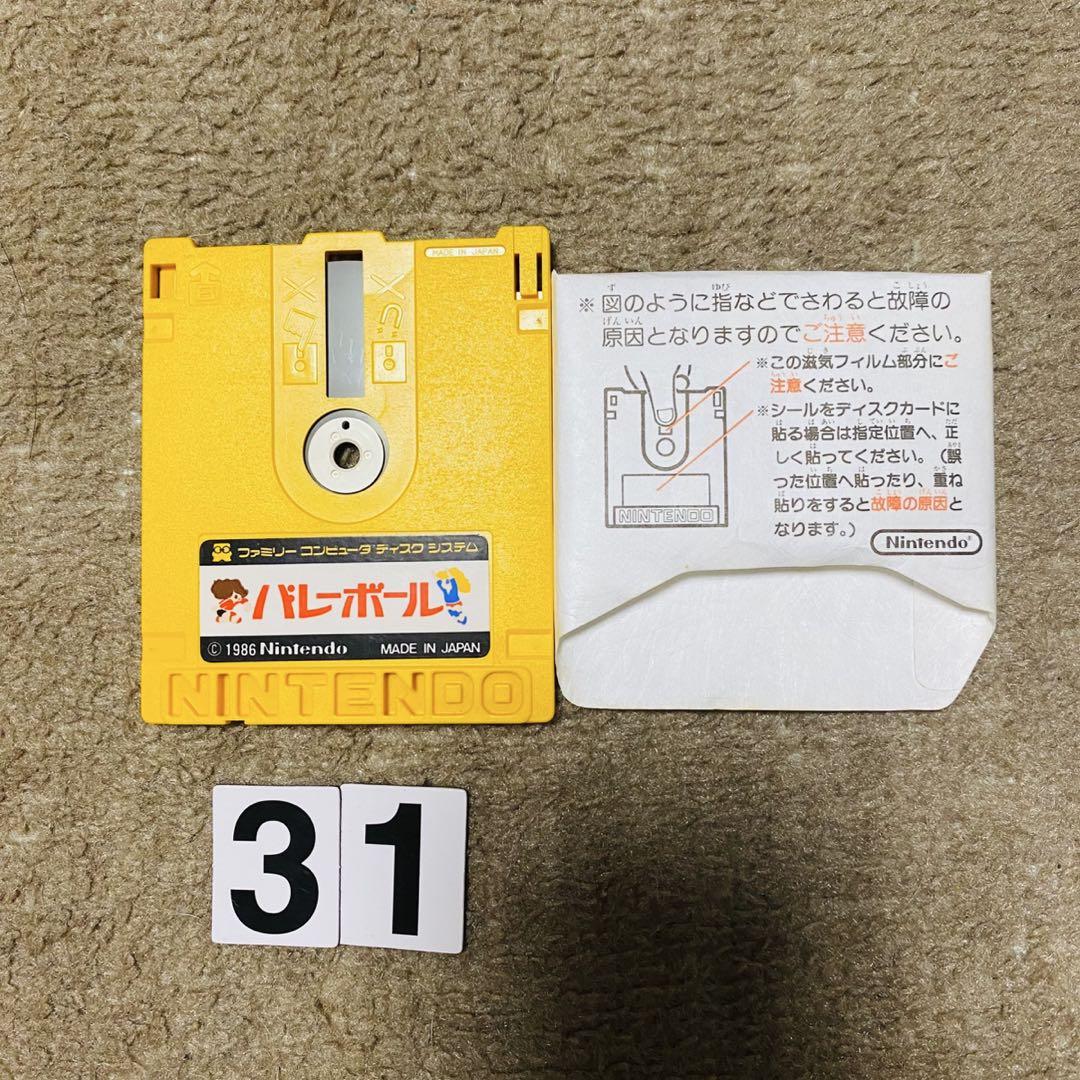 MADE IN JAPAN
ファミリー コンピュータ ディスク システム
バレーボール
© 1986 Nintendo MADE IN JAPAN
NINTENDO
※図のように指などでさわると故障の
原因となりますのでご注意ください。
※この滋気フィルム部分にご
注意ください。
※シールをディスクカードに
貼る場合は指定位置へ、正
しく貼ってください。(誤
った位置へ貼ったり、重ね
貼りをすると故障の原因と
なります。)
NINTENDO
Nintendo®
31